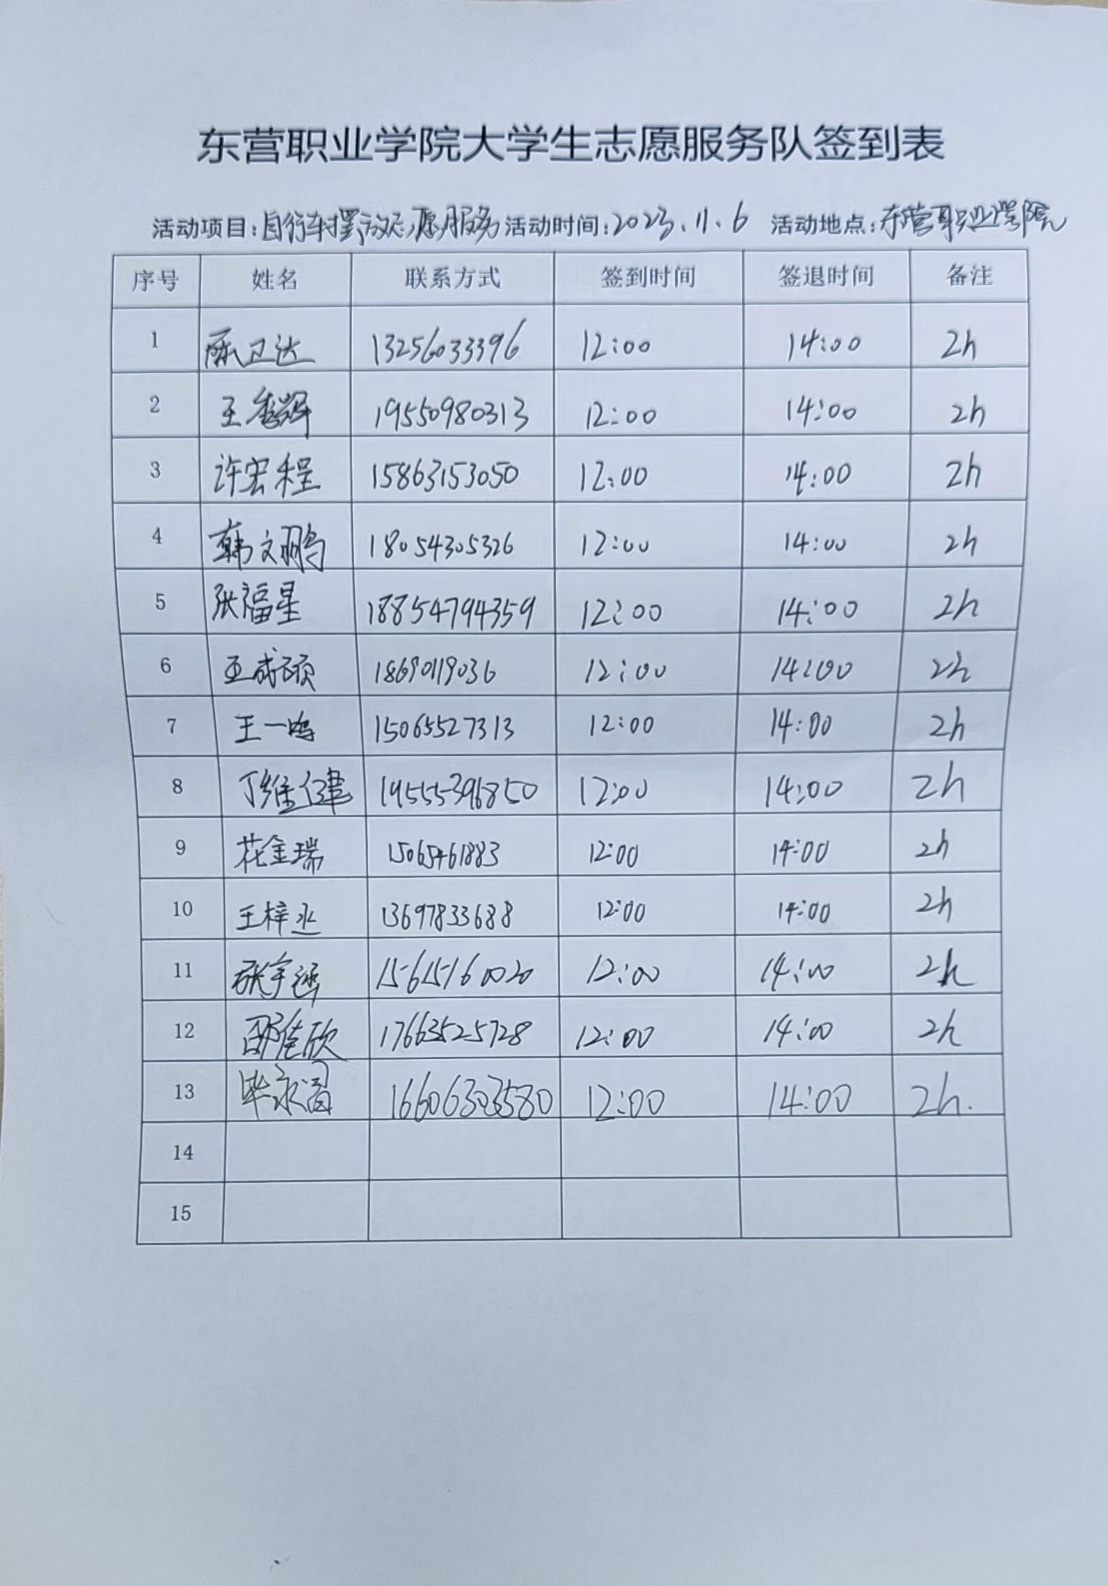 东营职业学院大学生志愿服务队签到表
活动项目:自行车摆放志愿服务 活动时间:2023.11.6 活动地点:东营职业学院
序号 姓名 联系方式 签到时间 签退时间 备注
1 陈卫达 13256033396 12:00 14:00 2h
2 王香辉 19550980313 12:00 14:00 2h
3 许宏程 15863153050 12:00 14:00 2h
4 韩文鹏 18054305326 12:00 14:00 2h
5 张福星 18854794359 12:00 14:00 2h
6 王成硕 18690119036 12:00 14:00 2h
7 王一鸣 15065527313 12:00 14:00 2h
8 丁维健 19555396850 12:00 14:00 2h
9 花金瑞 15065461883 12:00 14:00 2h
10 王梓丞 13697833688 12:00 14:00 2h
11 张宇涵 15615160020 12:00 14:00 2h
12 邵佳欣 17663525728 12:00 14:00 2h
13 毕永 16606303580 12:00 14:00 2h.
14
15